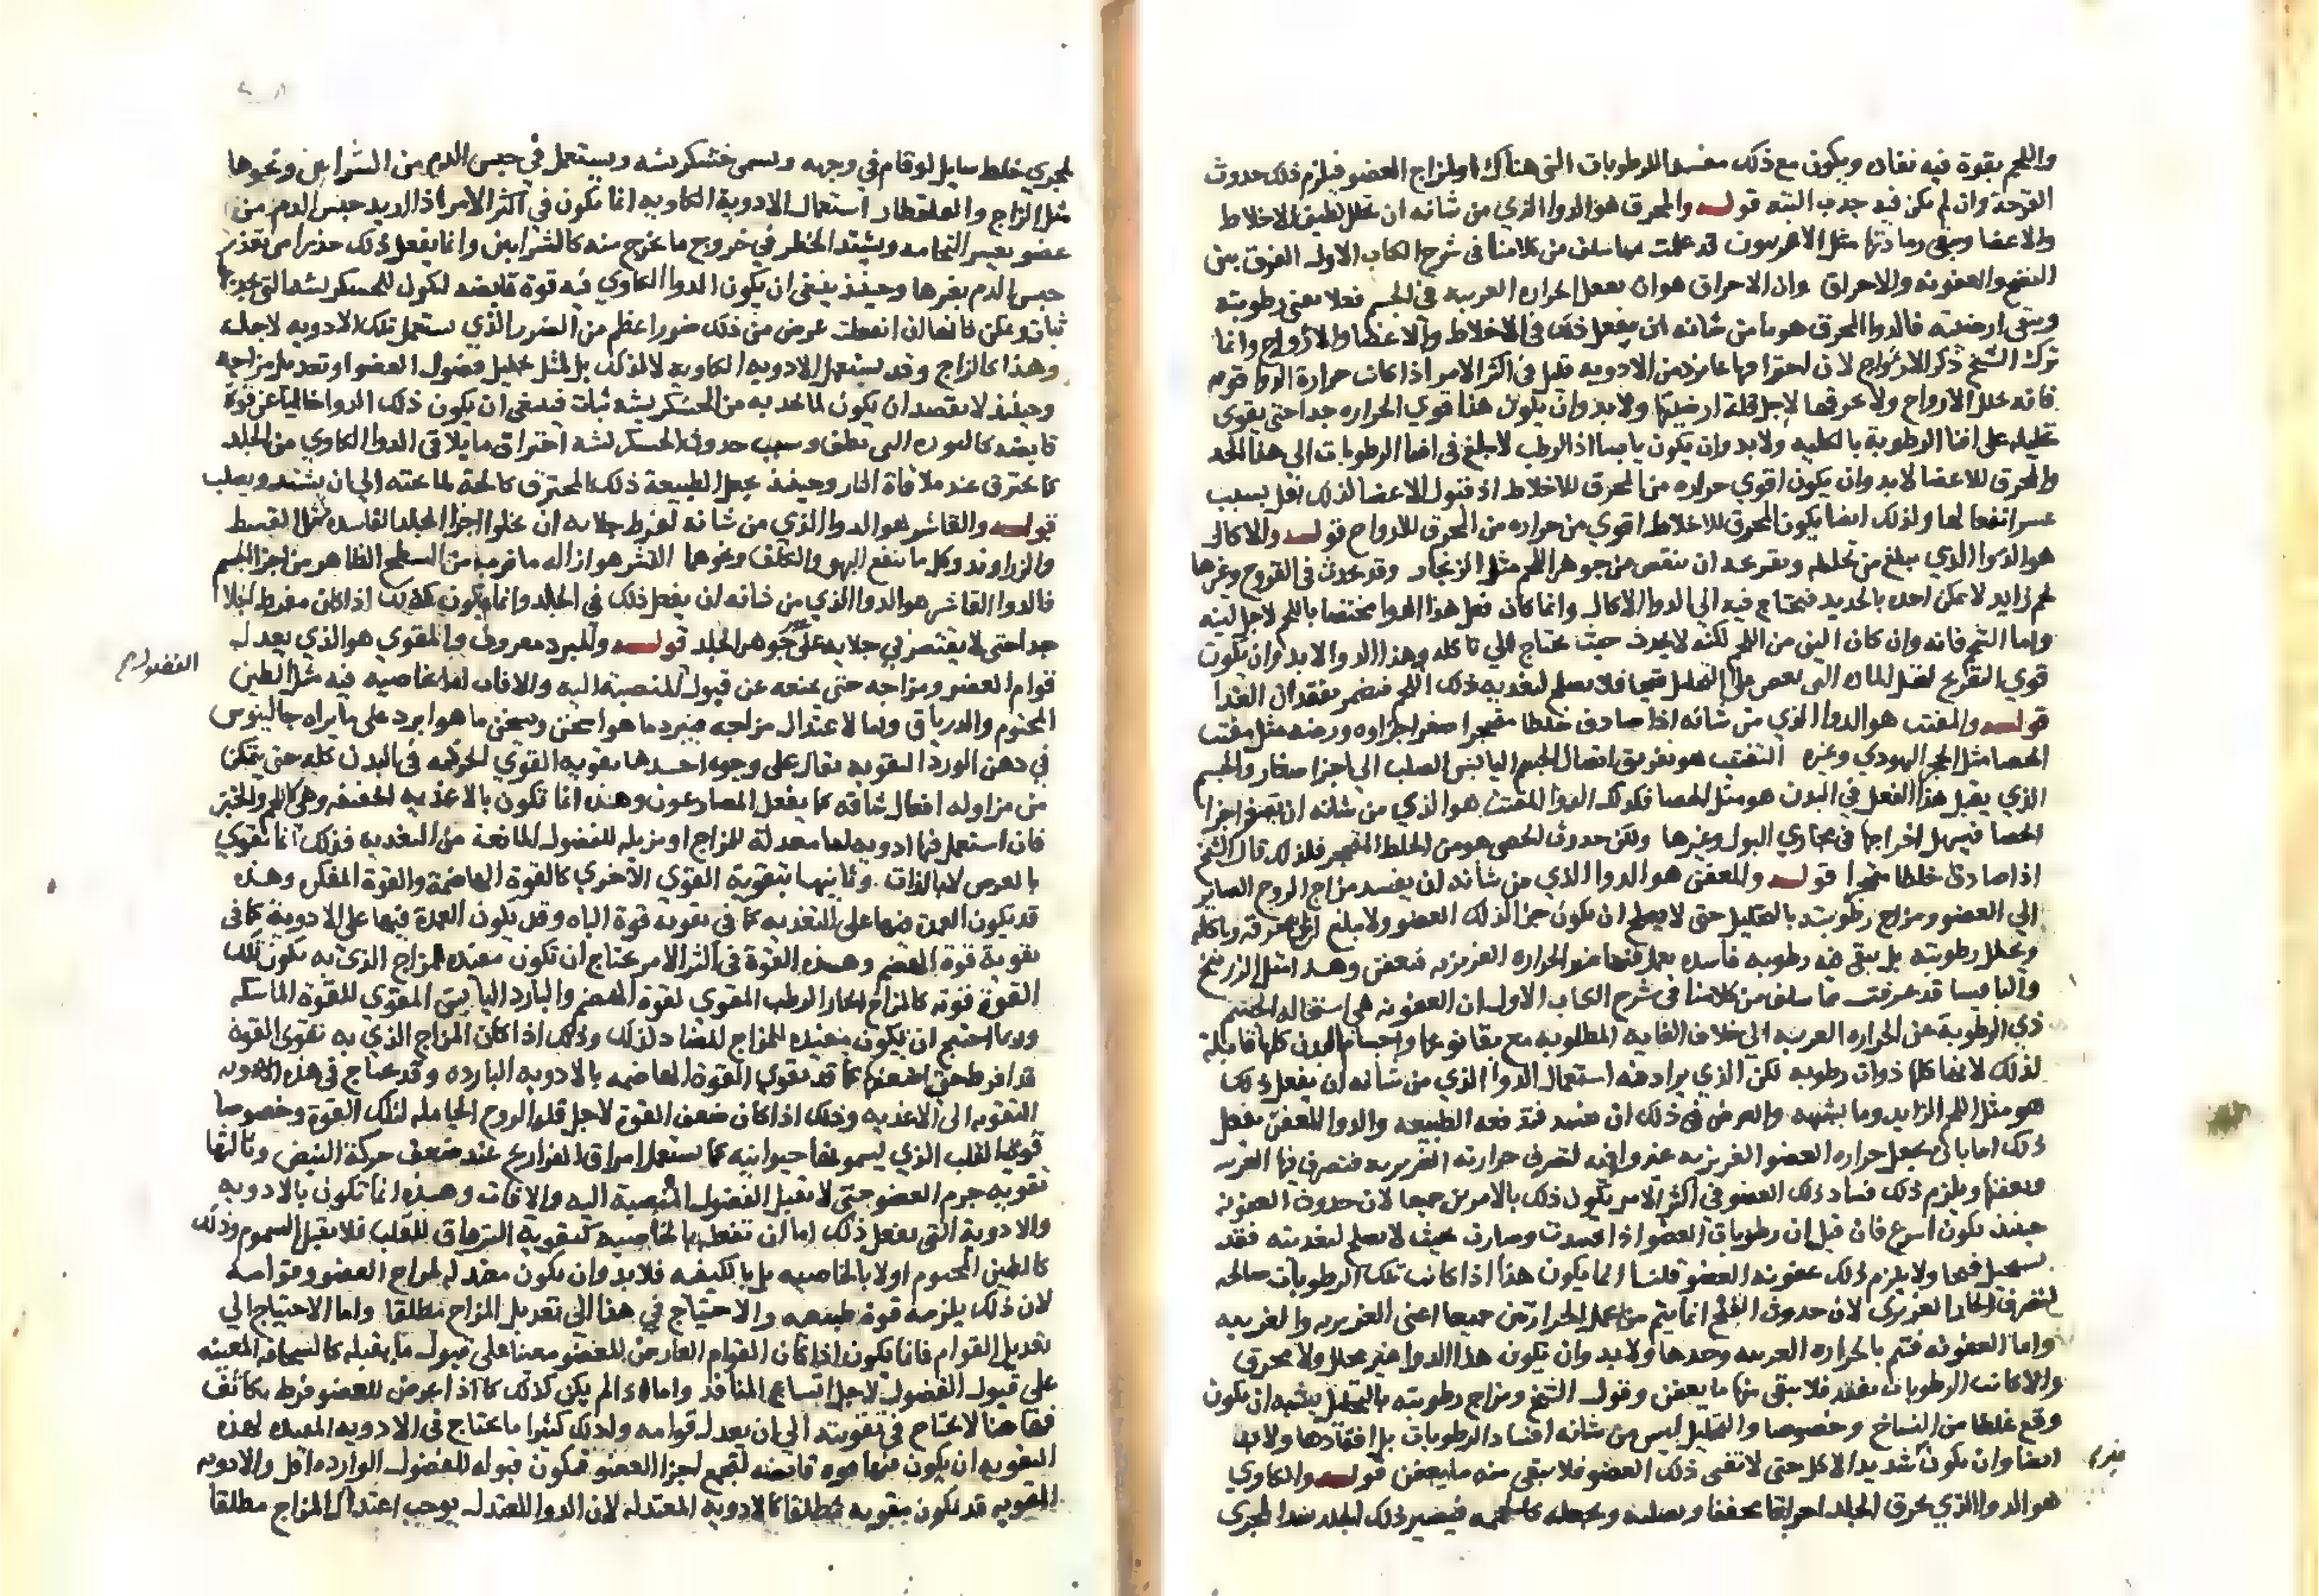 واللحم بقوة فيه نفاذ ويكون مع ذلك مفسد الرطوبات التي هناك او لمزاج العضو فيلزم ذلك حدوث
القرحة وان لم يكن فيه جذب البتة قولـه والمحرق هو الدوا الذي من شانه ان يحلل لطيف الاخلاط
والاعضا ويبقى رماديتها مثل الافربيون قد علمت مما سلف من كلامنا في شرح الكتاب الاول الفرق بين
النضج والعفونة والاحراق وان الاحراق هو ان يفعل الحراره الغريبه في الجسم فعلا يفني رطوبته
ويبقى ارضيته فالدوا المحرق هو ما من شانه ان يفعل ذلك في الاخلاط والاعضا والارواح وانما
ترك الشيخ ذكر الارواح لان من الادويه قليل في اكثر الامر اذا كانت حرارة الدوا قويه
فانه يحلل الارواح ولا يحرقها لاجل قلة ارضيتها ولا بد وان يكون هذا قوي الحراره جدا حتى يقوى
تحليله على افنا الرطوبة بالكليه ولا بد وان يكون يابسا اذ الرطب لا يبلغ في افنا الرطوبات الى هذا الحد
والمحرق للاعضا لا بد وان يكون اقوي حراره من المحرق للاخلاط اذ قبول الاعضا لذلك اقل بسبب
عسر انفعالها ولذلك ايضا يكون المحرق للاخلاط اقوي من حراره من المحرق للارواح قولـه والاكال
هو الدوا الذي يبلغ من تحليله وتقريحه ان ينقص من جوهر اللحم مثل الزنجار وقد يحدث في القروح وغيرها
لحم زايد لا يمكن اخذه بالحديد فيحتاج فيه الي الدوا الاكال وانما كان فعل هذا الدوا مختصا باللحم لاجل لينه
واما الشحم فانه وان كان الين من اللحم لكنه لا يحدث حيث يحتاج الي تاكله وهذا الدوا لا بد وان يكون
قوي التقريح فلا يصلح لتغذيه ذلك اللحم فيضمر بفقدان الغذا
قولـه والمفتت هو الدوا الذي من شانه اذا صادف خلطا متحجرا صغر اجزاوه ورضه مثل مفتت
الحصا مثل الحجر اليهودي وغيره التفتيت هو تفريق اتصال الجسم اليابس الصلب الي اجزا صغار والجسم
الذي يقبل هذا الفعل في البدن هو مثل الحصا فكذلك الدوا المفتت هو الذي من شانه ان يصغر اجزا
الحصا فيسهل اخراجها في مجاري البول وغيرها ولكن حدوث الحصي هو من الخلط المتحجر فلذلك قال الشيخ
اذا صادف خلطا متحجرا قولـه والمعفن هو الدوا الذي من شانه ان يفسد مزاج الروح الصاير
الي العضو ومزاج رطوبته بالتحليل حتى لا يصلح ان يكون جزا لذلك العضو ولا يبلغ ان يحرقه وياكله
ويحلل رطوبته بل يبقى فيه رطوبه فاسده يعمل فيها غير الحراره الغريزيه فيعفن وهذا مثل الزرنيخ
والثافسيا قد عرفت مما سلف من كلامنا في شرح الكتاب الاول ان العفونه هي استحالة الجسم
ذي الرطوبة عن الحراره الغريبه الى خلاف الغايه المطلوبه مع بقا نوعها واجسام البدن كلها قابلة
لذلك لانها كلها ذوات رطوبه لكن الذي يراد فيه استعمال الدوا الذي من شانه ان يفعل ذلك
هو مثل اللحم الزايد وما يشبهه والغرض في ذلك ان يفسد فتدفعه الطبيعه والدوا المعفن يفعل
ذلك اما بان يجعل حراره العضو الغريزيه غير وافيه لتصرف حرارته الغريزيه فتتصرف فيها الغريبه
ويعفنها ويلزم ذلك فساد ذلك العضو في اكثر الامر يكون ذلك بالامرين جميعا لان حدوث العفونه
حينئذ يكون اسرع فان قيل ان رطوبات العضو اذا فسدت وصارت بحيث لا يصلح لتغذيته فقد
ولا يلزم ذلك عفونة العضو قلنا انما يكون هذا اذا كانت تلك الرطوبات صالحه
لتصرف الحار الغريزي لان حدوث النضج انما يتم من عمل الحرارتين جميعا اعني الغريزيه والغريبه
واما العفونه فتتم بالحراره الغريبه وحدها ولا بد وان يكون هذا الدوا غير محلل ولا محرق
والا كانت الرطوبات تفقد فلا يبقى منها ما يعفن وقول الشيخ ومزاج رطوبته بالتحليل يشبه ان يكون
وقع غلطا من النساخ وخصوصا والتحليل ليس من شانه افساد الرطوبات بل افقادها ولا بد
ايضا وان يكون شديد الاكل حتى لا تفنى ذلك العضو فلا يبقى منه ما يعفن قولـه والكاوي
هو الدوا الذي يحرق الجلد احراقا مجففا ويصلبه ويجعله كالحممه فيصير ذلك الجلد سدا لمجرى
لمجري خلط سايل لو قام في وجهه ويسمى خشكريشه ويستعمل في حبس الدم من الشرايين ونحوها
مثل الزاج والقلقطار استعمال الادوية الكاويه انما يكون في اكثر الامر اذا اريد حبس الدم من
عضو يعسر التحامه ويشتد الخطر في خروج ما يخرج منه كالشرايين وانما يفعل ذلك حذرا من تعذر
حبس الدم بغيرها وحينئذ ينبغي ان يكون الدوا الكاوي فيه قوة قابضه ليكون للخشكريشه التي يحدثها
ثبات وتمكن فانها ان انقلعت عرض من ذلك ضرر اعظم من الضرر الذي يستعمل تلك الادويه لاجله
وهذا كالزاج وقد يستعمل الادويه الكاويه لا لذلك بل لمثل تحليل فضول العضو او تعديل مزاجه
وحينئذ لا يقصد ان يكون لما يحدثه من الخشكريشه ثبات فينبغي ان يكون ذلك الدوا خاليا عن قوة
قابضه كالنوره التي لم تطف وسبب حدوث الخشكريشه احتراق ما يلاقي الدوا الكاوي من الجلد
كما يحترق عند ملاقاة النار وحينئذ يجعل الطبيعة ذلك المحترق كالحمة لما تحته الي ان يشتد ويصلب
قولـه والقاشر هو الدوا الذي من شانه لفرط جلايه ان يجلوا اجزا الجلد الفاسده مثل القسط
والزراوند وكل ما ينفع البهق والكلف ونحوها القشر هو ازاله ما قرب من السطح الظاهر من اجزا الجسم
فالدوا القاشر هو الدوا الذي من شانه ان يفعل ذلك في الجلد وانما يكون كذلك اذا كان مفرط الجلا
جدا حتى لا يقتصر في جلايه على غير جوهر الجلد قولـه والمبرد معروف والمقوي هو الذي يعدل
الفضول صح
قوام العضو ومزاجه حتى يمنعه عن قبول المنصبة اليه والافات اما لخاصيه فيه مثل الطين
المختوم والدرياق واما لاعتدال مزاجه فيبرد ما هو اسخن ويسخن ما هو ابرد على ما يراه جالينوس
في دهن الورد التقويه تقال على وجوه احدها تقويه القوي المحركه في البدن كله حتى يتمكن
من مزاوله افعال شاقه كما يفعل المصارعون وهذه انما تكون بالاغذيه الخفيفه وهي كاللحم والخبز
فان استعمل فيها ادويه لها معدلة للمزاج او مزيله للفضول المانعة من التغذيه فذلك انما تقوي
بالعرض لا بالذات وثانيها تقوية القوي الاخري كالقوة الهاضمة والقوة المفكره وهذه
قد يكون العمدة فيها على التغذيه كما في تقويه قوة الباه وقد يكون العمدة فيها على الادوية كما في
تقوية قوة الهضم وهذه القوة في اكثر الامر يحتاج ان تكون مفيده للمزاج الذي به يكون تلك
القوة قويه كالمزاج الحار الرطب المقوي لقوة الهضم والبارد اليابس المقوي للقوة الماسكه
وربما احتيج ان يكون مفيده للمزاج المضاد لذلك وذلك اذا كان المزاج الذي به تقوى القوة
قد افرط حتى اضعفها كما قد يقوي القوة الهاضمه بالادويه البارده وقد يحتاج في هذه
التقويه الى الاغذيه وذلك اذا كان ضعف القوة لاجل قله الروح الحامله لتلك القوة وخصوصا
قوي القلب الذي يسمونها حيوانيه كما يستعمل امراق الفراريج عند ضعف حركة النبض وثالثها
تقويه جرم العضو حتى لا يقبل الفضول المنصبة اليه والافات وهذه انما تكون بالادويه
والادوية التي تفعل ذلك اما ان تفعله بالخاصيه كتقوية الترياق للقلب فلا يقبل السموم وذلك
كالطين المختوم او لا بالخاصيه بل بالكيفيه فلا بد وان يكون معدله لمزاج العضو وقوامه
لان ذلك يلزمه قوة طبيعيه والاحتياج في هذا الي تعديل المزاج مطلقا واما الاحتياج الي
تعديل القوام فانما يكون اذا كان القوام العارض للعضو معينا على قبول ما يقبله كالسخافه المعينه
على قبول الفضول لاجل اتساع المنافذ واما اذا لم يكن كذلك كما اذا عرض للعضو فرط تكاثف
فهاهنا لا يحتاج في تقويته الي ان يعدل قوامه ولذلك كثيرا ما يحتاج في الادويه المفيده لهذه
التقويه ان يكون فيها قوة قابضه لتجمع اجزا العضو فيكون قبوله للفضول الوارده اقل والادويه
المقويه قد تكون مقويه مطلقا كالادويه المعتدله لان الدوا المعتدل يوجب اعتدال المزاج مطلقا